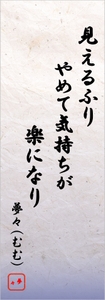 見えるふり
やめて気持ちが
楽になり
夢々(むむ)